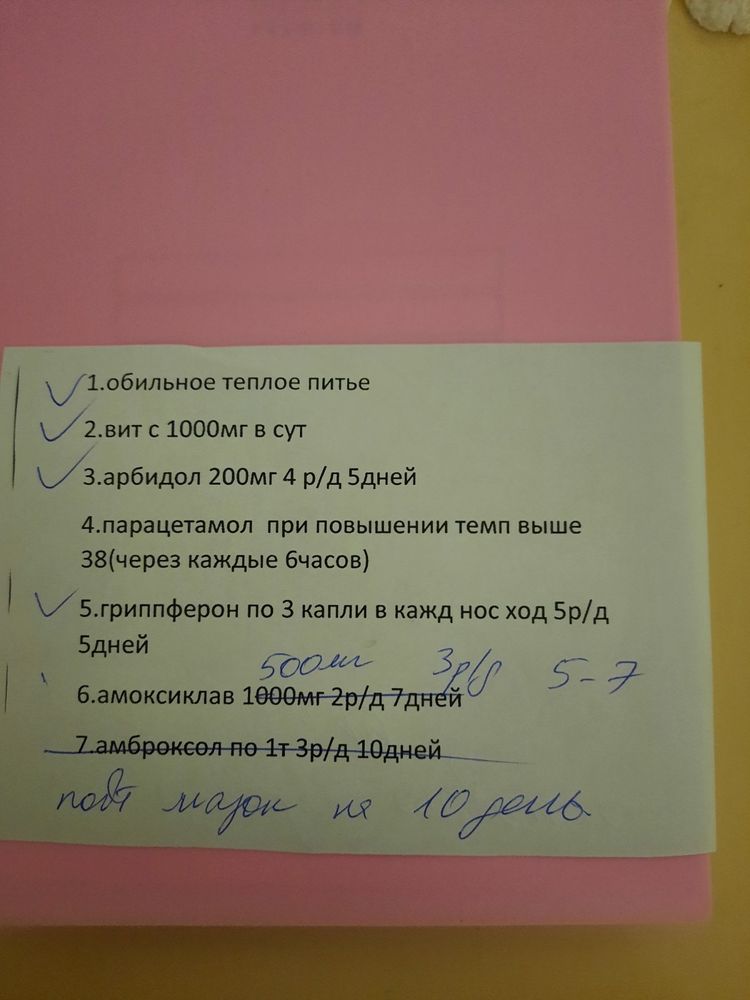 1.обильное теплое питье
2.вит с 1000мг в сут
3.арбидол 200мг 4 р/д 5дней
4.парацетамол при повышении темп выше
38(через каждые 6часов)
5.гриппферон по 3 капли в кажд нос ход 5р/д
5дней
500мг 3р/д 5-7
6.амоксиклав 1000мг 2р/д 7дней
7.амброксол по 1т 3р/д 10дней
мазок на 10 день